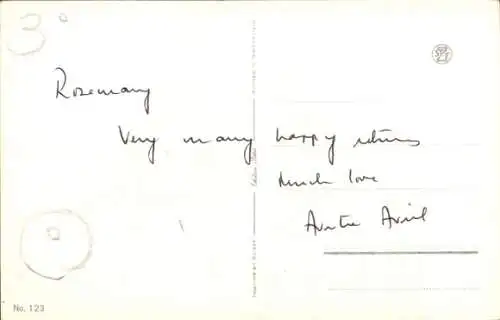 3
Rosemary
Very many happy returns
Much love
Auntie Avril
No. 123